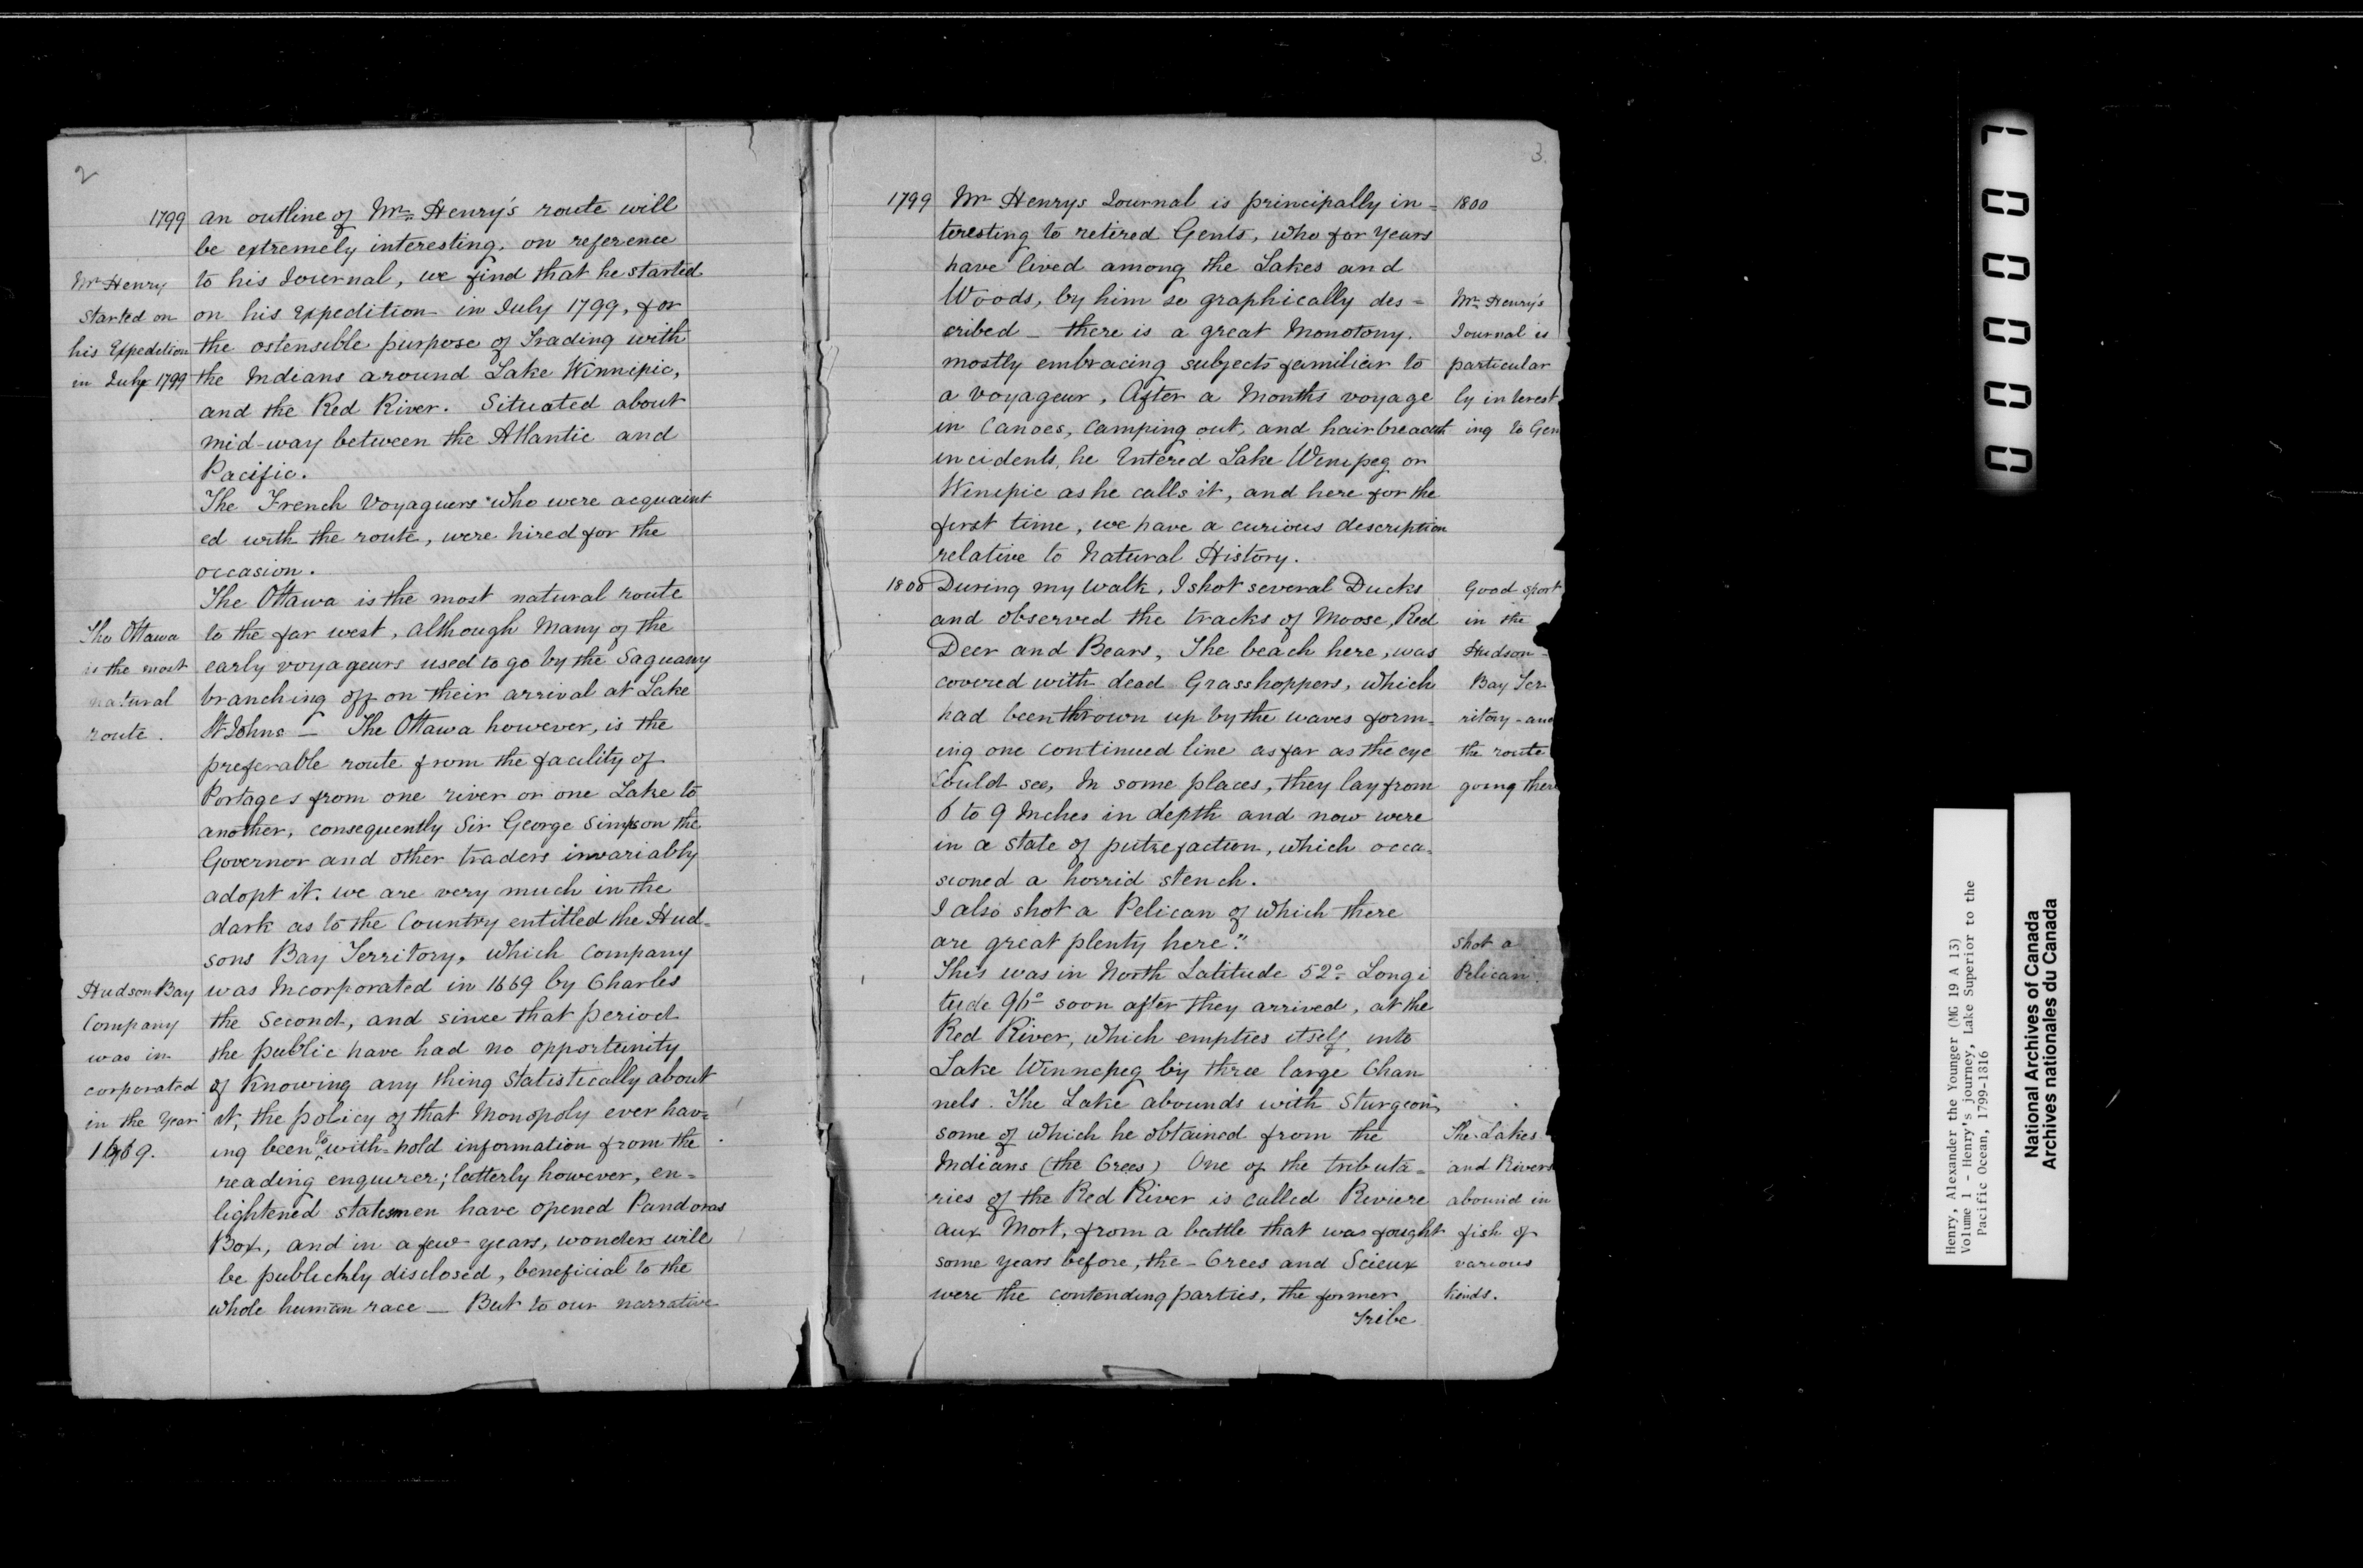 2
1799 an outline of Mr. Henry's route will
be extremely interesting, on reference
Mr Henry to his Journal, we find that he started
started on on his Expedition in July 1799, for
his Expedition the ostensible purpose of Trading with
in July 1799 the Indians around Lake Winnipic,
and the Red River. Situated about
mid-way between the Atlantic and
Pacific.
The French Voyaguers who were acquaint
ed with the route, were hired for the
occasion.
The Ottawa is the most natural route
The Ottawa to the far west, although Many of the
is the most early voyageurs used to go by the Saguany
natural branching off on their arrival at Lake
route. St Johns — The Ottawa however, is the
preferable route from the facility of
Portages from one river or one Lake to
another, consequently Sir George Simpson the
Governor and other traders invariably
adopt it. we are very much in the
dark as to the Country entitled the Hud-
sons Bay Territory, which Company
Hudson Bay was Incorporated in 1669 by Charles
Company the Second, and since that period
was in the public have had no opportunity
corporated of Knowing any thing Statistically about
in the year it, the policy of that Monopoly ever hav=
1669. ing been to with-hold information from the
reading enquirer; latterly however, en=
lightened statesmen have opened Pandoras
Box, and in a few years, wonders will
be publickly disclosed, beneficial to the
whole human race — But to our narrative
3.
1799 Mr Henrys Journal is principally in= 1800
teresting to retired Gents, who for years
have lived among the Lakes and
Woods, by him so graphically des= Mr. Henry's
cribed — there is a great Monotony. Journal is
mostly embracing subjects familiar to particular
a voyageur, After a Months voyage ly interest
in Canoes, Camping out, and hairbreadth ing to Gen
incidents, he Entered Lake Winipeg or
Winipic as he calls it, and here for the
first time, we have a curious description
relative to Natural History.
1800 During my walk, I shot several Ducks Good sport
and observed the tracks of Moose, Red in the
Deer and Bears, The beach here, was Hudson-
covered with dead Grasshoppers, which Bay Ter
had been thrown up by the waves form= ritory - and
ing one continued line as far as the eye the route
Could see, In some places, they lay from going there
6 to 9 Inches in depth and now were
in a state of putrefaction, which occa=
sioned a horrid stench.
I also shot a Pelican of which there
are great plenty here." shot a
This was in North Latitude 52° Longi Pelican.
tude 96° soon after they arrived, at the
Red River, which empties itself, into
Lake Winnepeg by three large Chan
nels. The Lake abounds with Sturgeon,
some of which he obtained from the The Lakes
Indians (the Crees) One of the tributa= and Rivers
ries of the Red River is called Riviere abound in
aux Mort, from a battle that was fought fish of
some years before, the - Crees and Scieux various
were the contending parties, the former kinds.
Tribe
000007
Henry, Alexander the Younger (MG 19 A 13)
Volume 1 - Henry's journey, Lake Superior to the
Pacific Ocean, 1799-1816
National Archives of Canada
Archives nationales du Canada